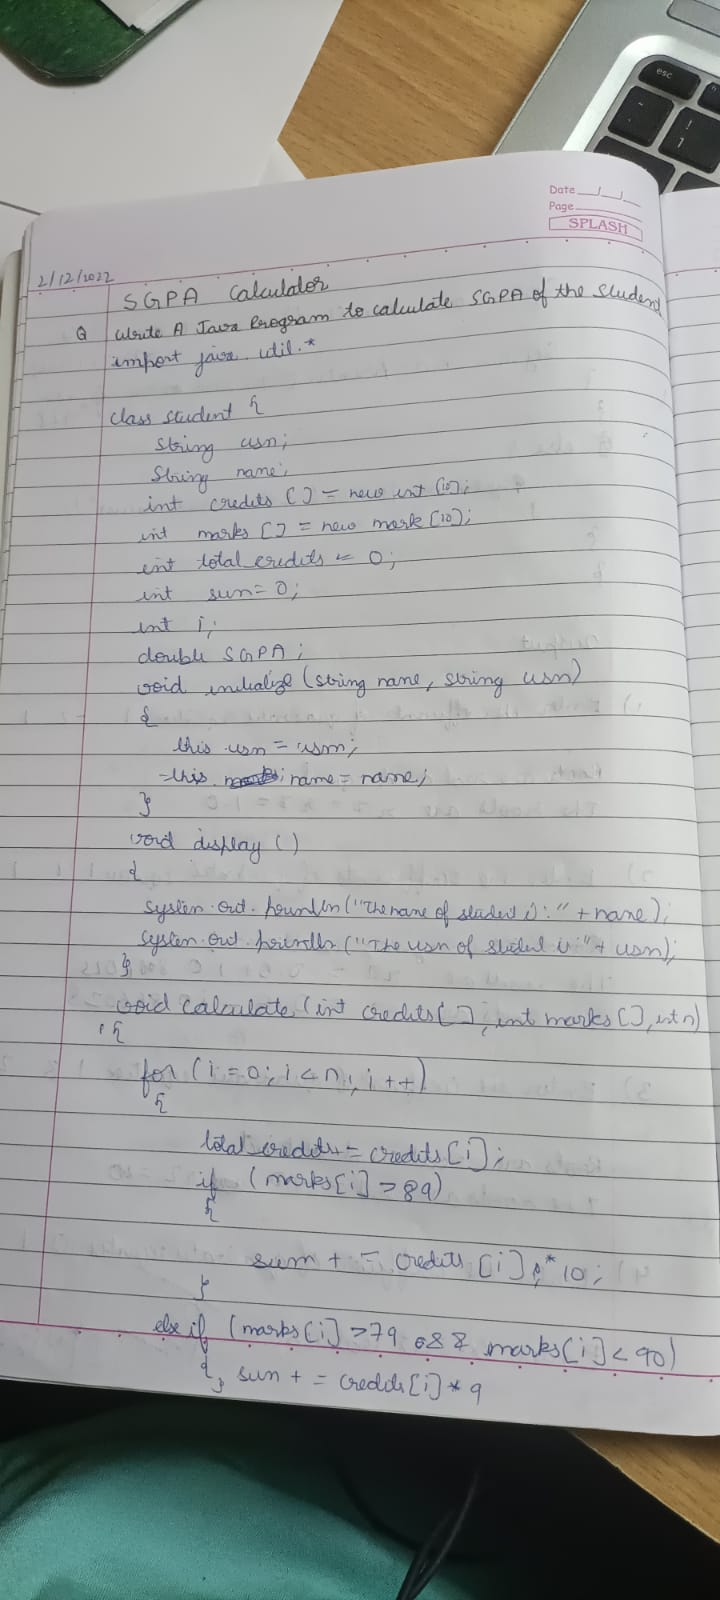 esc
Date
Page
SPLASH
2/12/2022
SGPA Calculator
Q Write A Java Program to calculate SGPA of the student
import java.util.*
class student {
String usn;
String name;
int credits [] = new int [10];
int marks [] = new mark [10];
int total_credits = 0;
int sum = 0;
int i;
double SGPA;
void initialize (string name, string usn)
{
this.usn = usn;
this. name = name;
}
void display ()
{
System.out.println("The name of student is:" + name);
System.out.println("The usn of student is:" + usn);
}
void calculate (int credits[], int marks [], int n)
{
for (i=0; i<n; i++)
{
total_credits += credits[i];
if (marks[i] >89)
{
sum + = credits [i] * 10;
}
else if (marks[i] >79 && marks[i] < 90)
{ sum + = credits[i] * 9
}